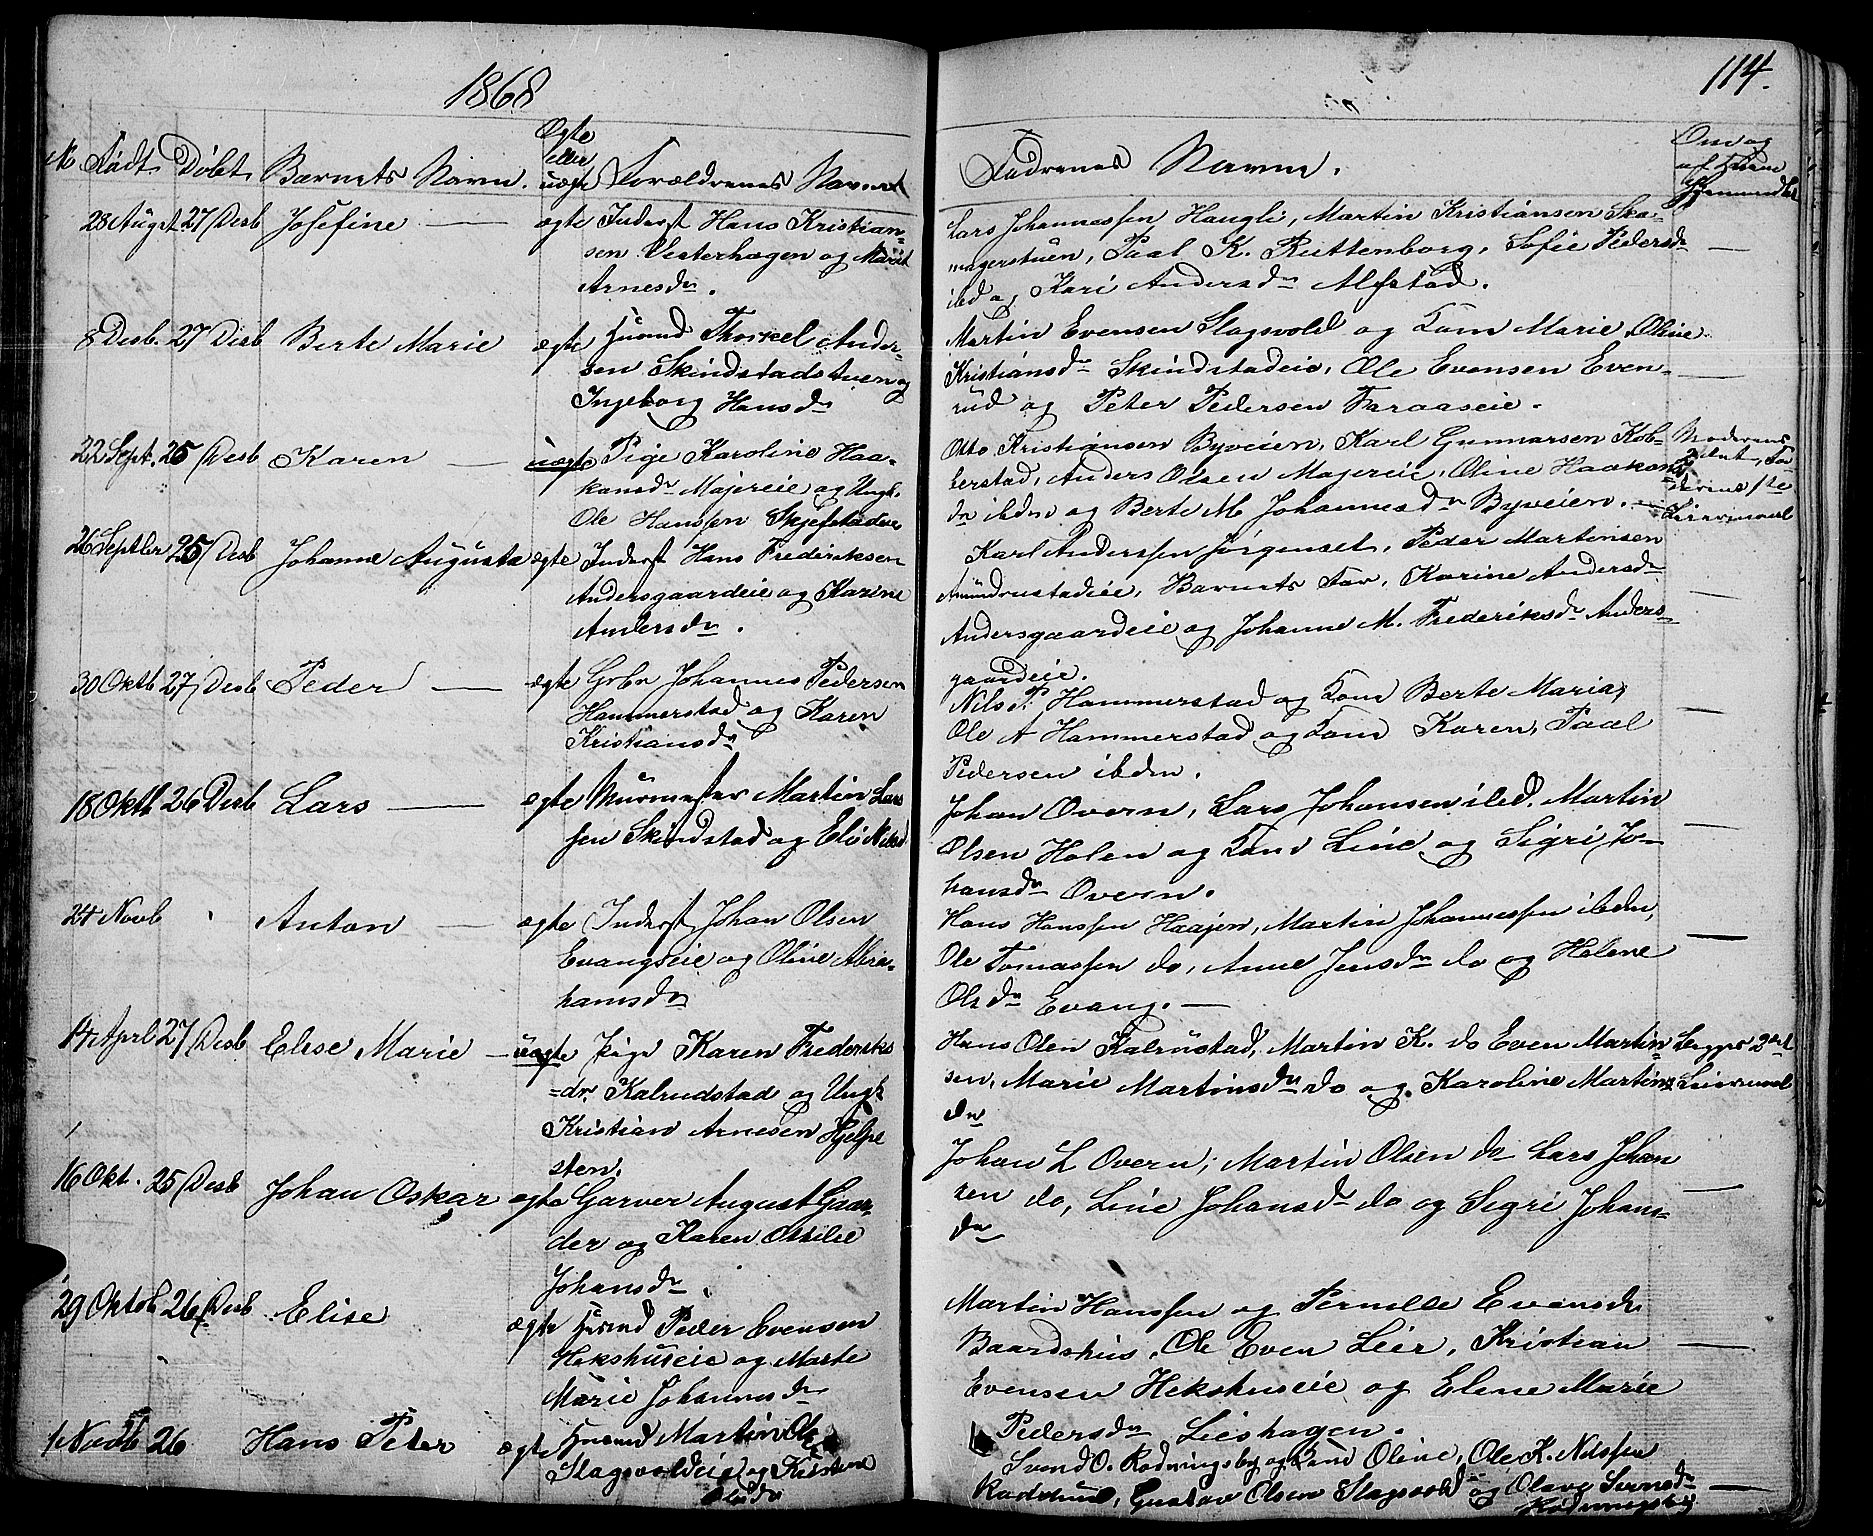 1868
114.
№ Födt Döbt Barnets Navn. Ægte eller uægte Forældrenes Navne
Fadrenes Navne.
28 Augst 27/Desb Josefine — ægte Inderst Hans Kristian-
sen Vesterhagen og Marit
Arnesdr.
Lars Johannessen Haugli, Martin Kristiansen Sko-
magerstuen, Paal K. Ruttenborg, Sofie Pedersdr
ibd og Kari Andersdr Alfstad. —
8 Desb. 27 Desb Berte Marie ægte Husmd Thorkel Ander-
sen Skindstadstuen og
Ingeborg Hansdr
Martin Evensen Slagsvold og Kone Marie, Oline
Kristiansdr Skindstadeie, Ole Evensen Even-
rud og Peter Pedersen Faraaseie. —
22 Sept. 25/Desb Karen — uægte Pige Karoline Haa-
kansdr Majereie og Ungk.
Ole Hanssen Skjefstadeie
Otto Kristiansen Byveien, Karl Gunnarsen Kol-
berstad, Anders Olsen Majereie, Oline Haakons-
dr ibdm og Berte M. Johannesdr Byveien. —
Moderens
2det, Fa-
derens 1ste
Leiermaal
26 Septbr 25/Desb Johanne Augusta ægte Inderst Hans Frederiksen
Andersgaardeie og Karine
Andersdr.
Karl Anderssen Jörgenset, Peder Martinsen
Amundrustadeie, Barnets Far, Karine Andersdr
Andersgaardeie og Johanne M. Frederiksdr Anders-
gaardeie. —
30 Oktb 27/Desb Peder — ægte Grbr Johannes Pedersen
Hammerstad og Karen
Kristiansdr
Nils P. Hammerstad og Kone Berte Maria,
Ole A Hammerstad og Kone Karen, Paal
Pedersen ibdm. —
18 Oktb 26 Desb Lars — ægte Murmester Martin Lars
sen Skindstad og Eli Nilsd
Johan Overn, Lars Johansen ibd. Martin
Olsen Holen og Kone Line og Sigri Jo-
hansdr Overn. —
24 Novb Anton — ægte Inderst Johan Olsen
Evangseie og Oline Abra-
hamsdr
Hans Hanssen Haajen, Martin Johannessen ibdm,
Ole Tomassen do, Anne Jensdr do og Helene
Olsdr Evang. —
14 Aprl 27/Desb Elise Marie — uægte Pige Karen Frederiks
=dr. Kalrudstad og Ungk
Kristian Arnesen Hjelpe
sten.
Hans Olsen Kalrustad, Martin K. do Even Martin-
sen, Marie Martinsdr do og Karoline Martins
dr
Begges 2det
Leiermaal
16 Okt. 25/Desb Johan Oskar ægte Garver August Gaar-
der og Karen Otilie
Johansdr.
Johan L Overn, Martin Olsen do Lars Johan
sen do, Line Johansdr do og Sigri Johans-
dr —
29 Oktob 26/Desb Elise ægte Husmd Peder Evensen
Hekshuseie og Marte
Marie Johannesdr
Martin Hanssen og Pernille Evensdr
Baardshus, Ole Even Lier, Kristian
Evensen Hekshuseie og Elene Marie
Pedersdr Lieshagen. —
1 Novb 26 Hans Peter ægte Husmd Martin Ols
Slagsvoldeie og Kristine
Olsdr
Svend O. Rodningsby og Kone Oline, Ole K. Nilssen
Gustav Olsen Slagsvold og Olave Svensdr
Rodningsby —